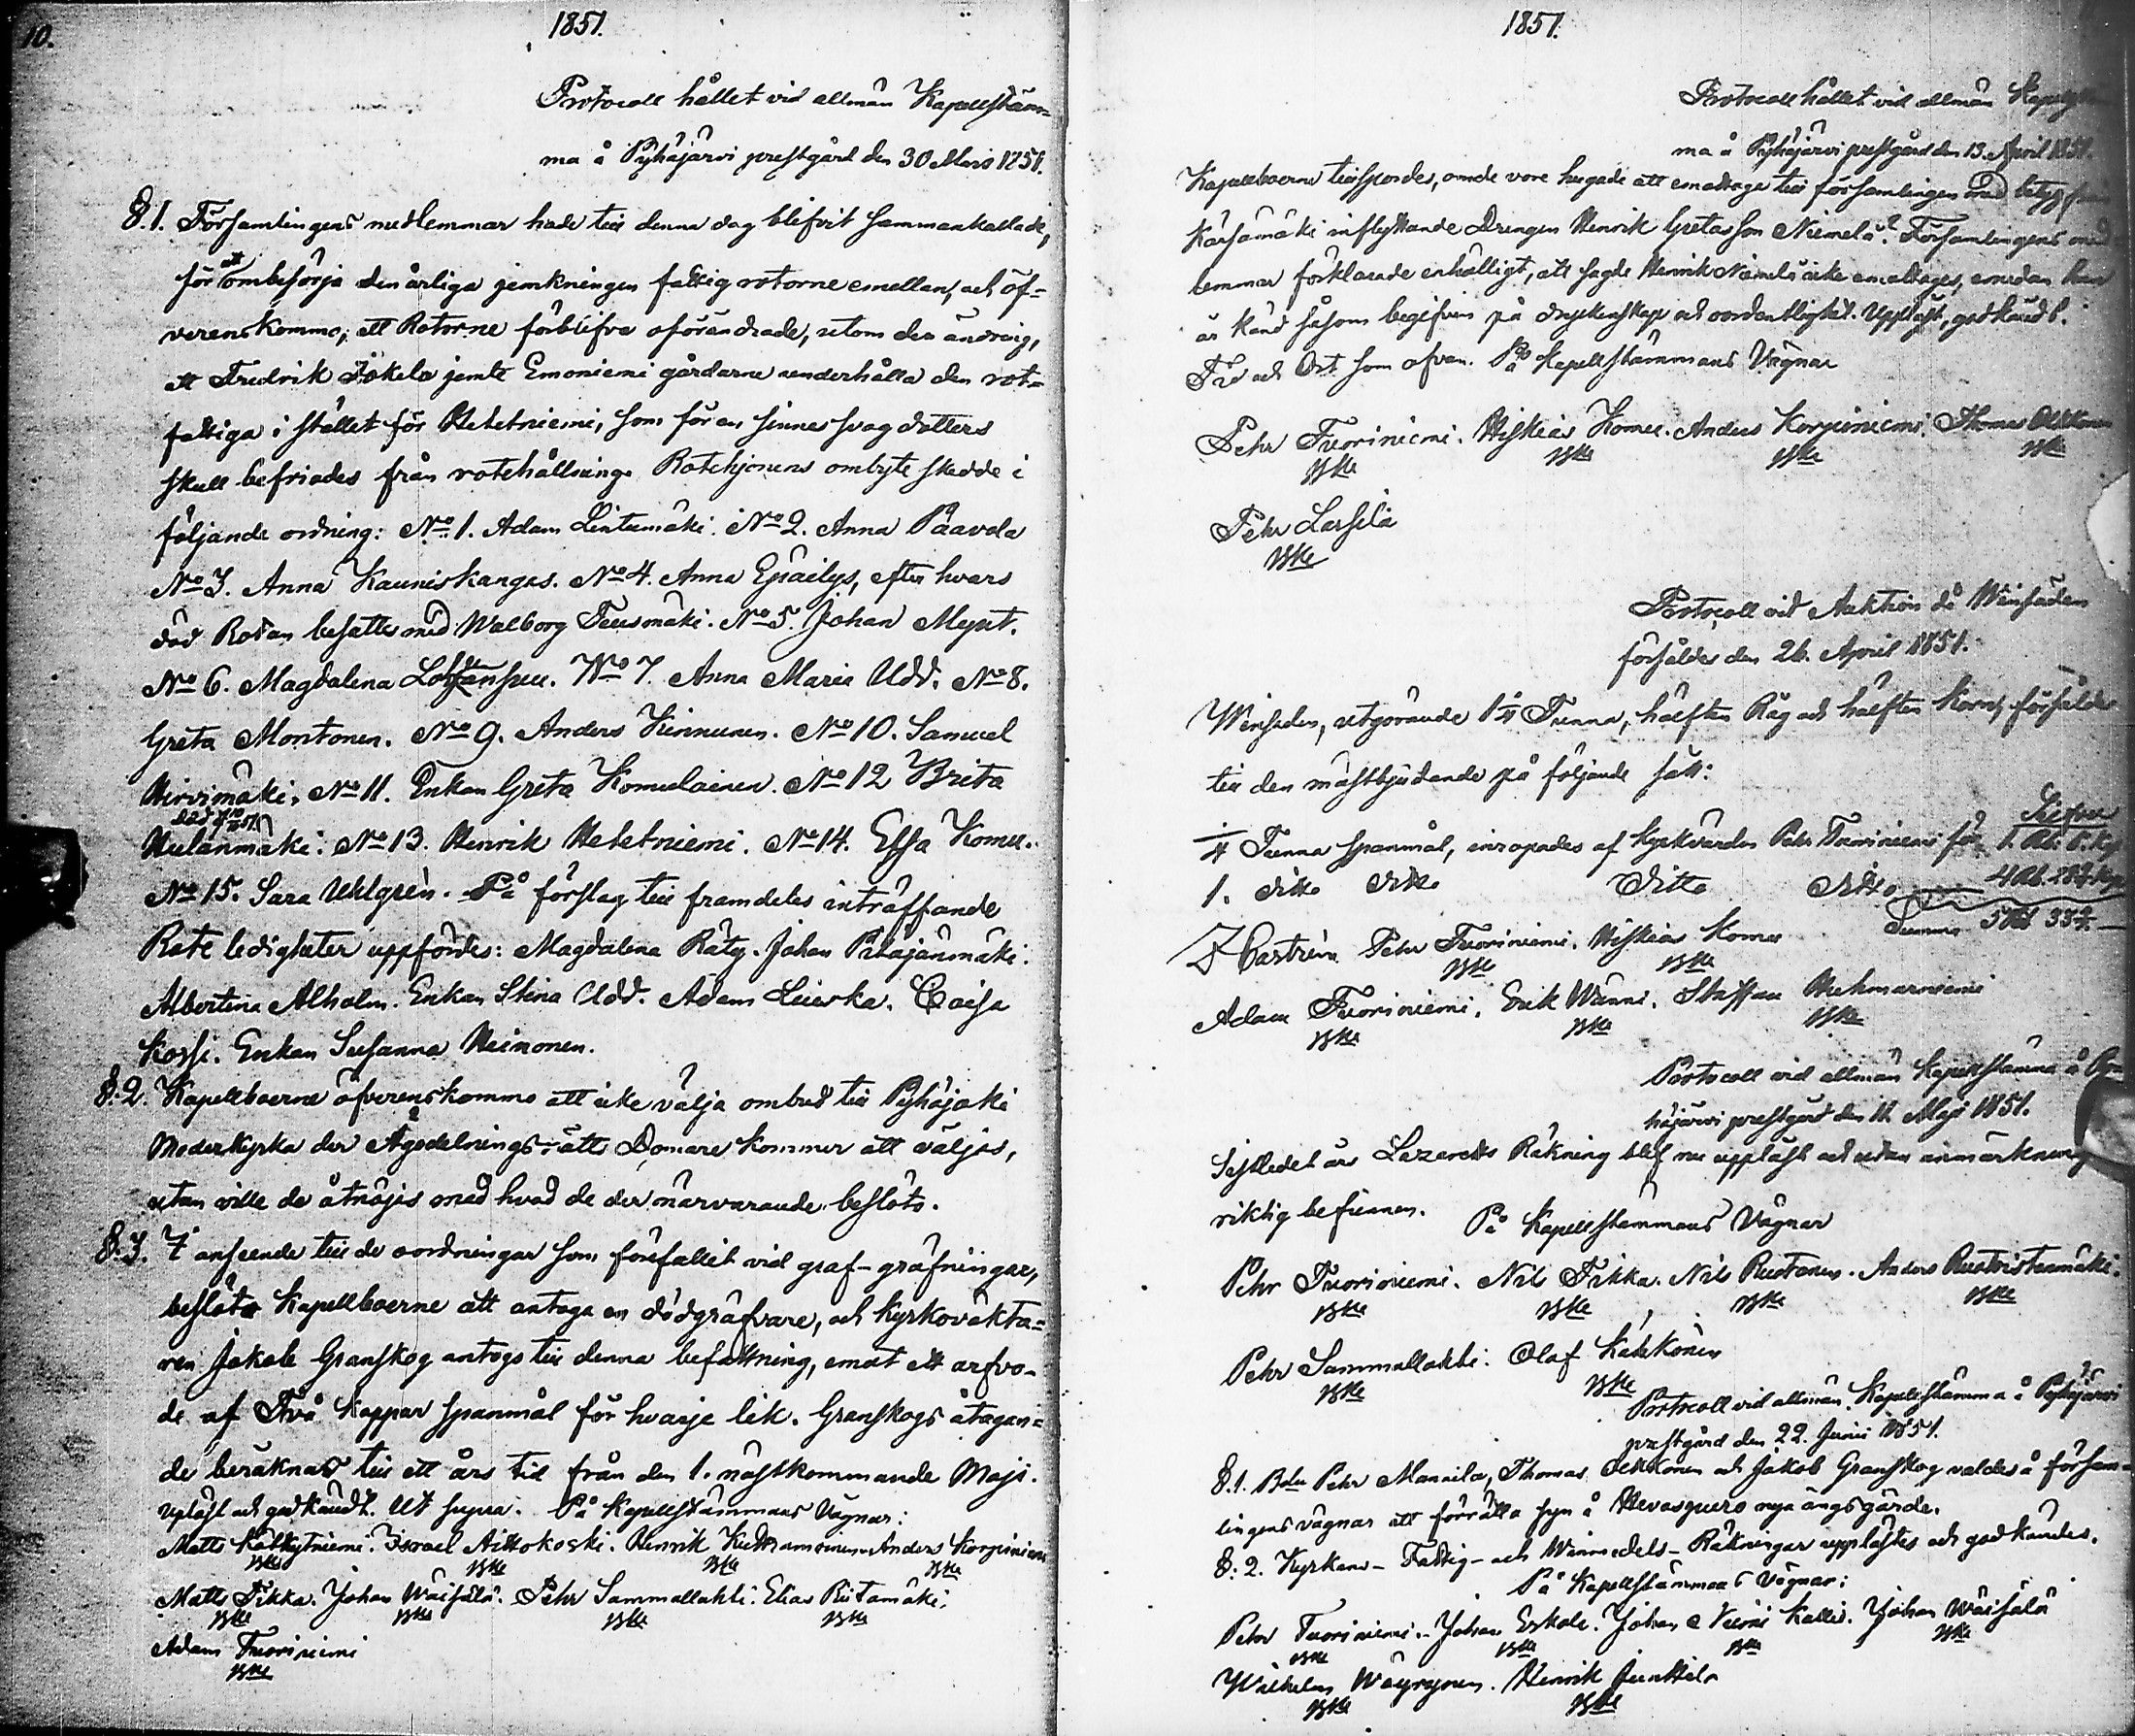 10.
1851.
Protocoll hållet vid allmän Kapellstäm=
ma å Pyhäjärvi prestgård den 30 Mars 1851.
§.1. Församlingens medlemmar hade till denna dag blifvit sammankallade,
för att ombesörja den årliga jemkningen fattig rotorne emellan, och öf=
verenskommo, att Rotorne förblifva oförändrade, utom den ändring,
att Fredrik Jökela jemte Emoniemi gårdarne underhålla den rot=
fattiga i stället för Hetetniemi, som för en sinnessvag dotters
skull befriades från rotehållning. Rotehjonens ombyte skedde i
följande ordning: No 1. Adam Lintumäki. No 2. Anna Paavola
No 3. Anna Kauniskangas. No 4. Anna Epäilys, efter hvars
död Rotan besattes med Walborg Teusmäki. No 5. Johan Mynt.
No 6. Magdalena No 7. Anna Maria Udd. No 8.
Greta Montonen. No 9. Anders Kinnunen. No 10. Samuel
Hirvimäki. No 11. Enkan Greta Komulainen. No 12 Brita
död
Hulanmäki. No 13. Henrik Hetetniemi. No 14. Essa Komu.
No 15. Sara Uhlgrén. På förslag till framdeles inträffande
Rote ledigheter uppfördes: Magdalena Räty. Johan Pitäjänmäki.
Albertina Alholm. Enkan Stina Udd. Adam Leiviska. Caisa
Korpi. Enkan Susanna Heinonen.
§.2. Kapellboerne öfverenskommo att icke välja ombud till Pyhäjoki
Moderkyrka der Ägodelnings-rätts Domare kommer att väljas,
utan ville de åtnöjas med hvad de der närvarande besluta.
§.3. I anseende till de oordningar som förefallit vid graf-gräfningar,
beslöto Kapellboerne att antaga en dödgräfvare, och kyrkovakta=
ren Jakob Granskog antogs till denna befattning, emot ett arfvo-
de af Två Kappar spanmål för hvarje lik. Granskogs åtagan=
de beräknas till ett års tid från den 1. nästkommande Maji.
Upläst och godkändt. Ut supra. På Kapellstämmans Vägnar:
Matts Israel Aittokoski. Henrik Anders Korpiniemi
Matts Tikka. Johan Wäisälä. Pehr Sammallahti. Elias Riitamäki.
Adam Tuoriniemi
1851.
Protocoll hållet vid allmän
ma å Pyhäjärvi prestgård den 13. April 1851.
Kapellboerne tillspordes, om de vore hugade att emottaga till församlingen med betyg från
Kärsämäki inflyttande Drengen Henrik Gretasson Niemelä? Församlingens med
lemmar förklarade enhälligt, att sagde Henrik Niemelä icke emottages, emedan han
är känd såsom begifven på dryckenskap och oordentlighet. Uppläst, godkändt.
År och Ort som ofvan. På Kapellstämmans Vägnar
Pehr Tuoriniemi. Hiskias Komu. Anders Korpiniemi. Thomas
Pehr Lassila
Protocoll vid Auktion då Winsäden
försåldes den 26. April 1851.
Winsäden, utgörande 1¼ Tunna, hälften Råg och hälften Korn, försåldes
till den mästbjudande på följande sätt:
¼ Tunna spanmål, inropades af kyrkvärden Pehr Tuoriniemi för 1. Rb. 5. kop
1. ditto ditto ditto ditto 4 Rb.
Summa 5 Rb
Castrén Pehr Tuoriniemi. Hiskias Komu
Adam Tuoriniemi. Erik Wänni. Staffan
Protocoll vid allmän Kapellstämma å Py=
häjärvi prestgård den 11. Maji 1851.
Sistledet års Lazaretts Räkning blef nu uppläst och utan anmärkning
riktig befunnen. På Kapellstämmans Vägnar
Pehr Tuoriniemi. Nils Tikka. Nils Ruotanen. Anders
Pehr Sammallahti. Olof Kähkönen
Protocoll vid allmän Kapellstämma å Pyhäjärvi
prestgård den 22. Junii 1851.
§.1. Pehr Mannila, Thomas och Jakob Granskog valdes å försam=
lingens vägnar att förrätta syn å Hevaspuro nya ängsgärde.
§.2. Kyrkans- Fattig- och Winmedels- Räkningar upplästes och godkändes.
På Kapellstämmans Vägnar:
Pehr Tuoriniemi. Johan Eskola. Johan Kallio. Johan Wäisälä
Wilhelm Wäyrynen. Henrik Junttila